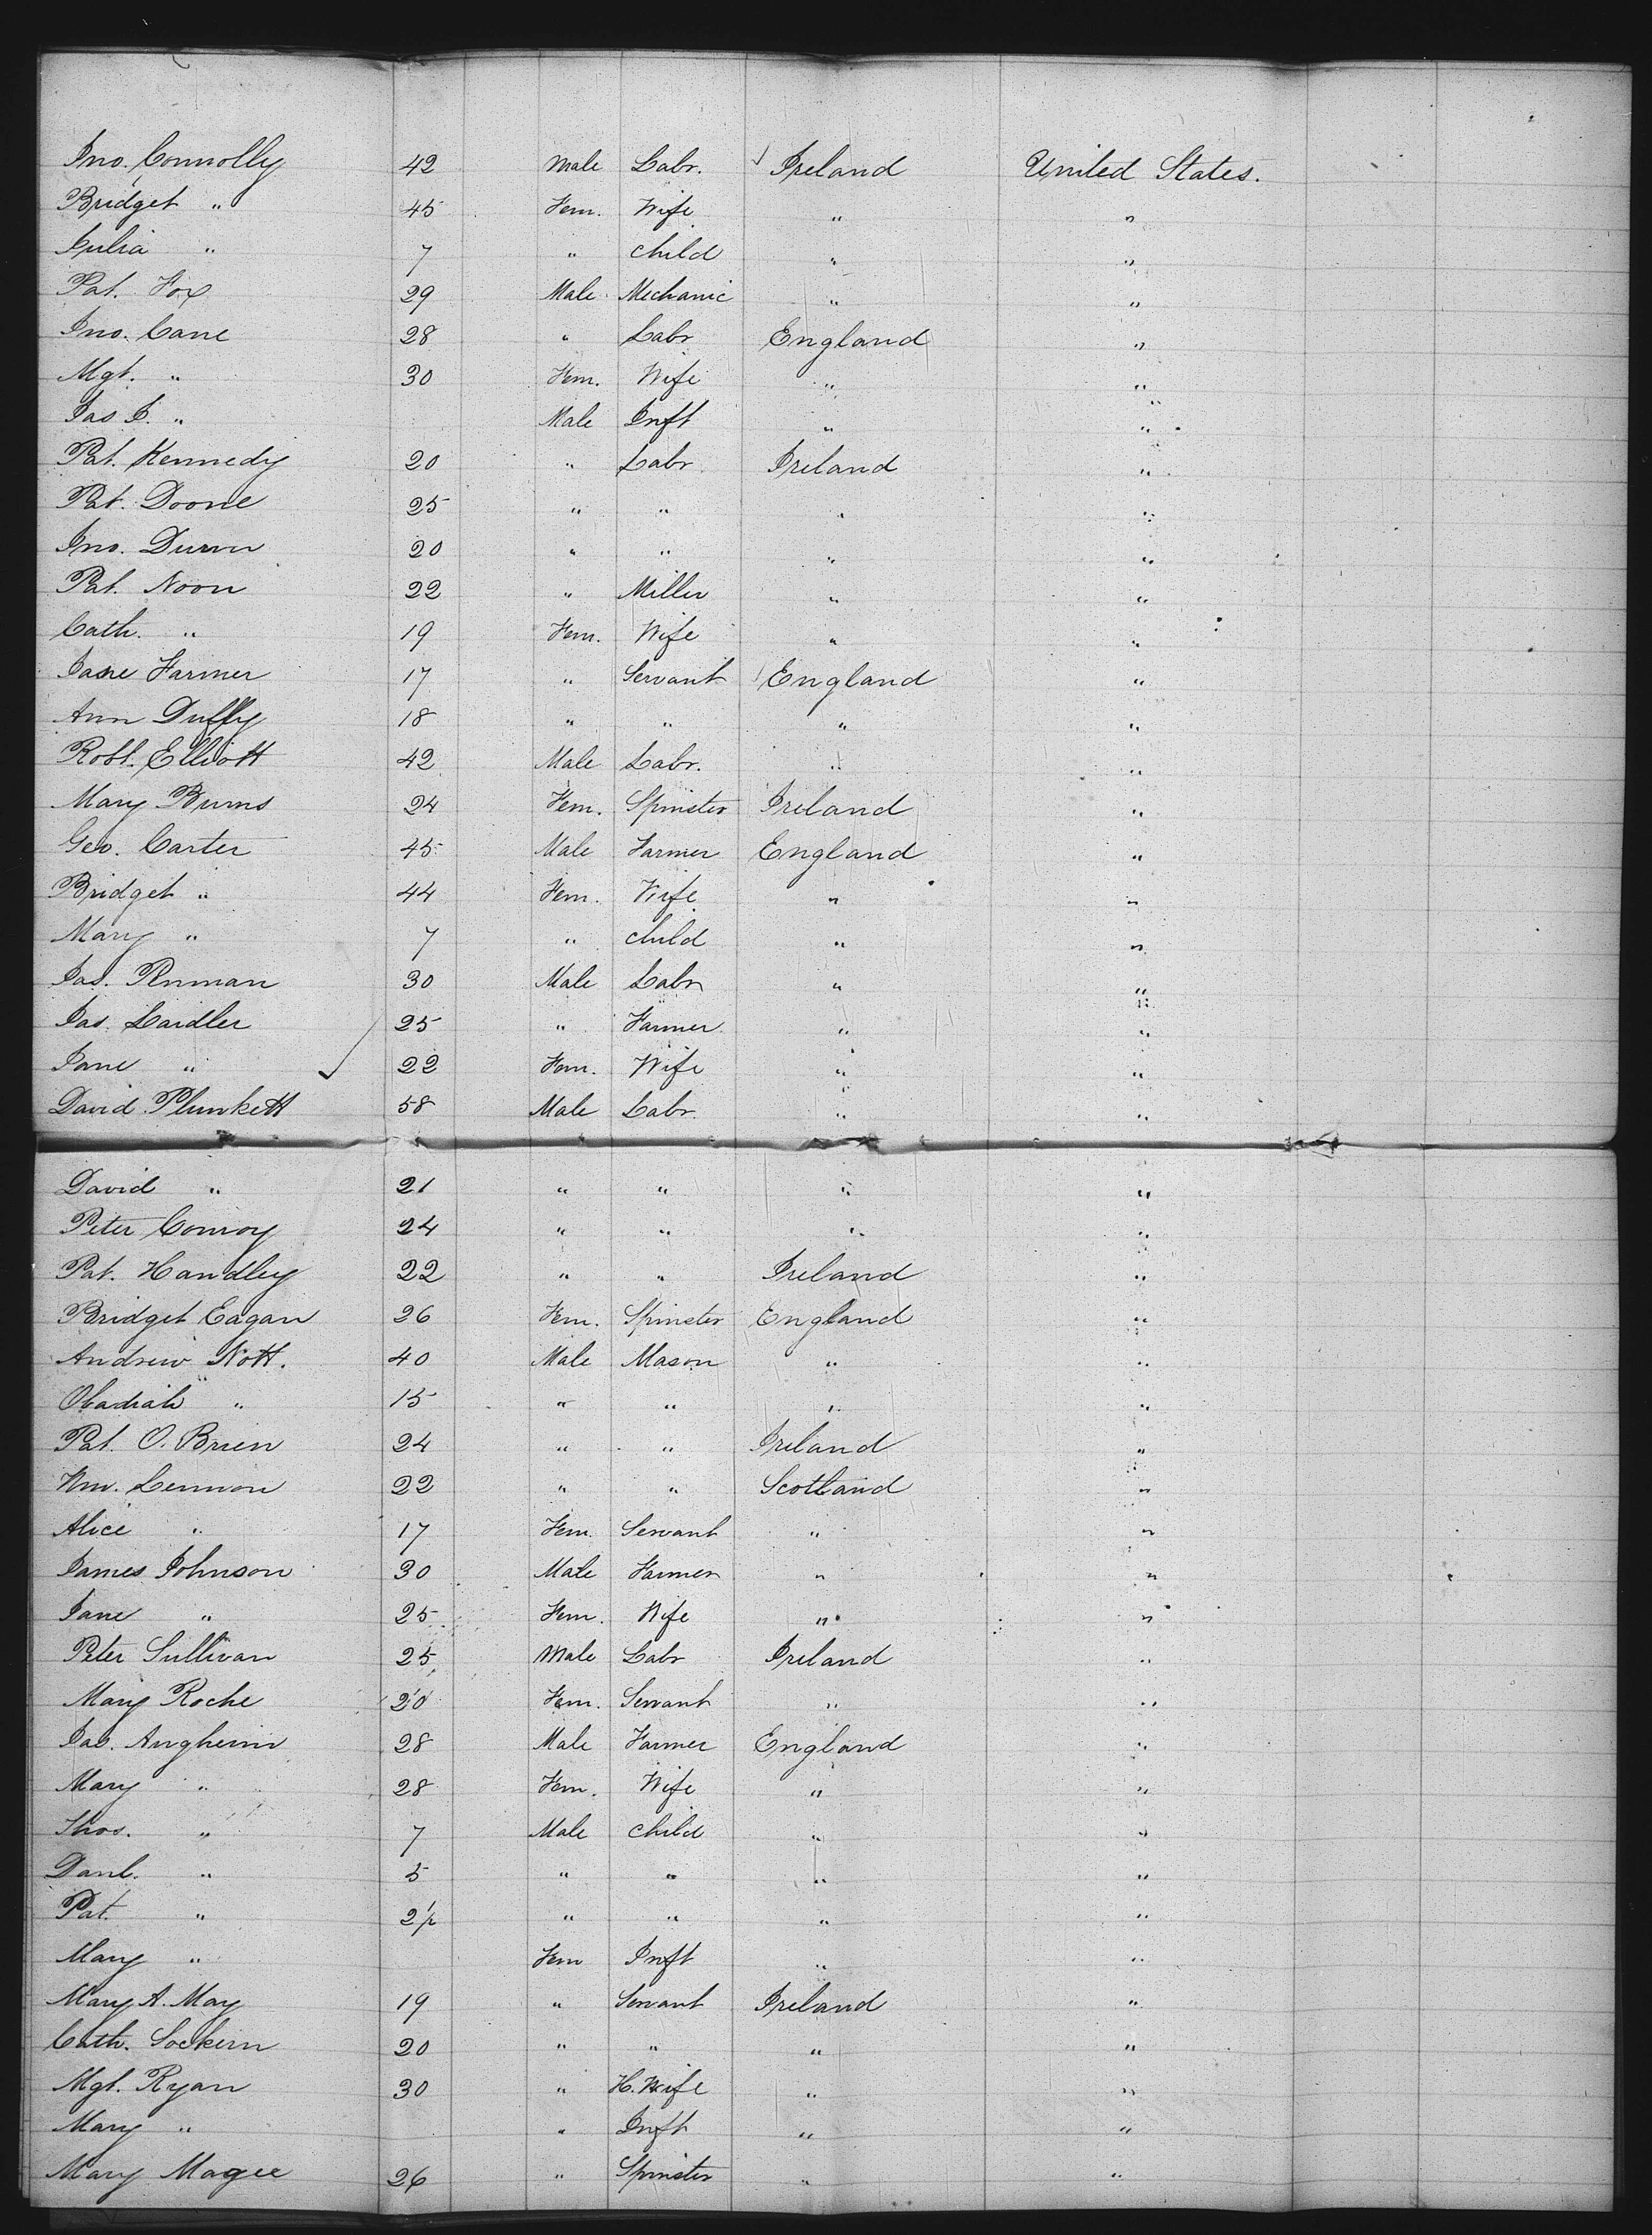 Jno. Connolly 42 Male Labr. Ireland United States.
Bridget " 45 Fem. Wife " "
Julia " 7 " Child " "
Pat. Fox 29 Male Mechanic " "
Jno. Cane 28 " Labr England "
Mgt. " 30 Fem. Wife " "
Jas J. " Male Inft " "
Pat. Kennedy 20 " Labr Ireland "
Pat. Doone 25 " " " "
Jno. Dunn 20 " " " "
Pat. Noon 22 " Miller " "
Cath. " 19 Fem. Wife " "
Jane Farmer 17 " Servant England "
Ann Duffy 18 " " " "
Robt. Elliott 42 Male Labr. " "
Mary Burns 24 Fem. Spinster Ireland "
Geo. Carter 45 Male Farmer England "
Bridget " 44 Fem. Wife " "
Mary " 7 " Child " "
Jas. Penman 30 Male Labr " "
Jas. Laidler 25 " Farmer " "
Jane " 22 Fem. Wife " "
David Plunkett 58 Male Labr. " "
David " 21 " " " "
Peter Conroy 24 " " " "
Pat. Handley 22 " " Ireland "
Bridget Eagan 26 Fem. Spinster England "
Andrew Nott. 40 Male Mason " "
Obadiah " 15 " " " "
Pat. O. Brien 24 " " Ireland "
Wm. Lennon 22 " " Scotland "
Alice " 17 Fem. Servant " "
James Johnson 30 Male Farmer " "
Jane " 25 Fem. Wife " "
Peter Sullivan 25 Male Labr Ireland "
Mary Roche 20 Fem. Servant " "
Jas. 28 Male Farmer England "
Mary " 28 Fem. Wife " "
Thos. " 7 Male Child " "
Danl. " 5 " " " "
Pat. " 2½ " " " "
Mary " Fem Inft " "
Mary A. May 19 " Servant Ireland "
Cath. Sockern 20 " " " "
Mgt. Ryan 30 " H. Wife " "
Mary " " Inft " "
Mary Magee 26 " Spinster " "